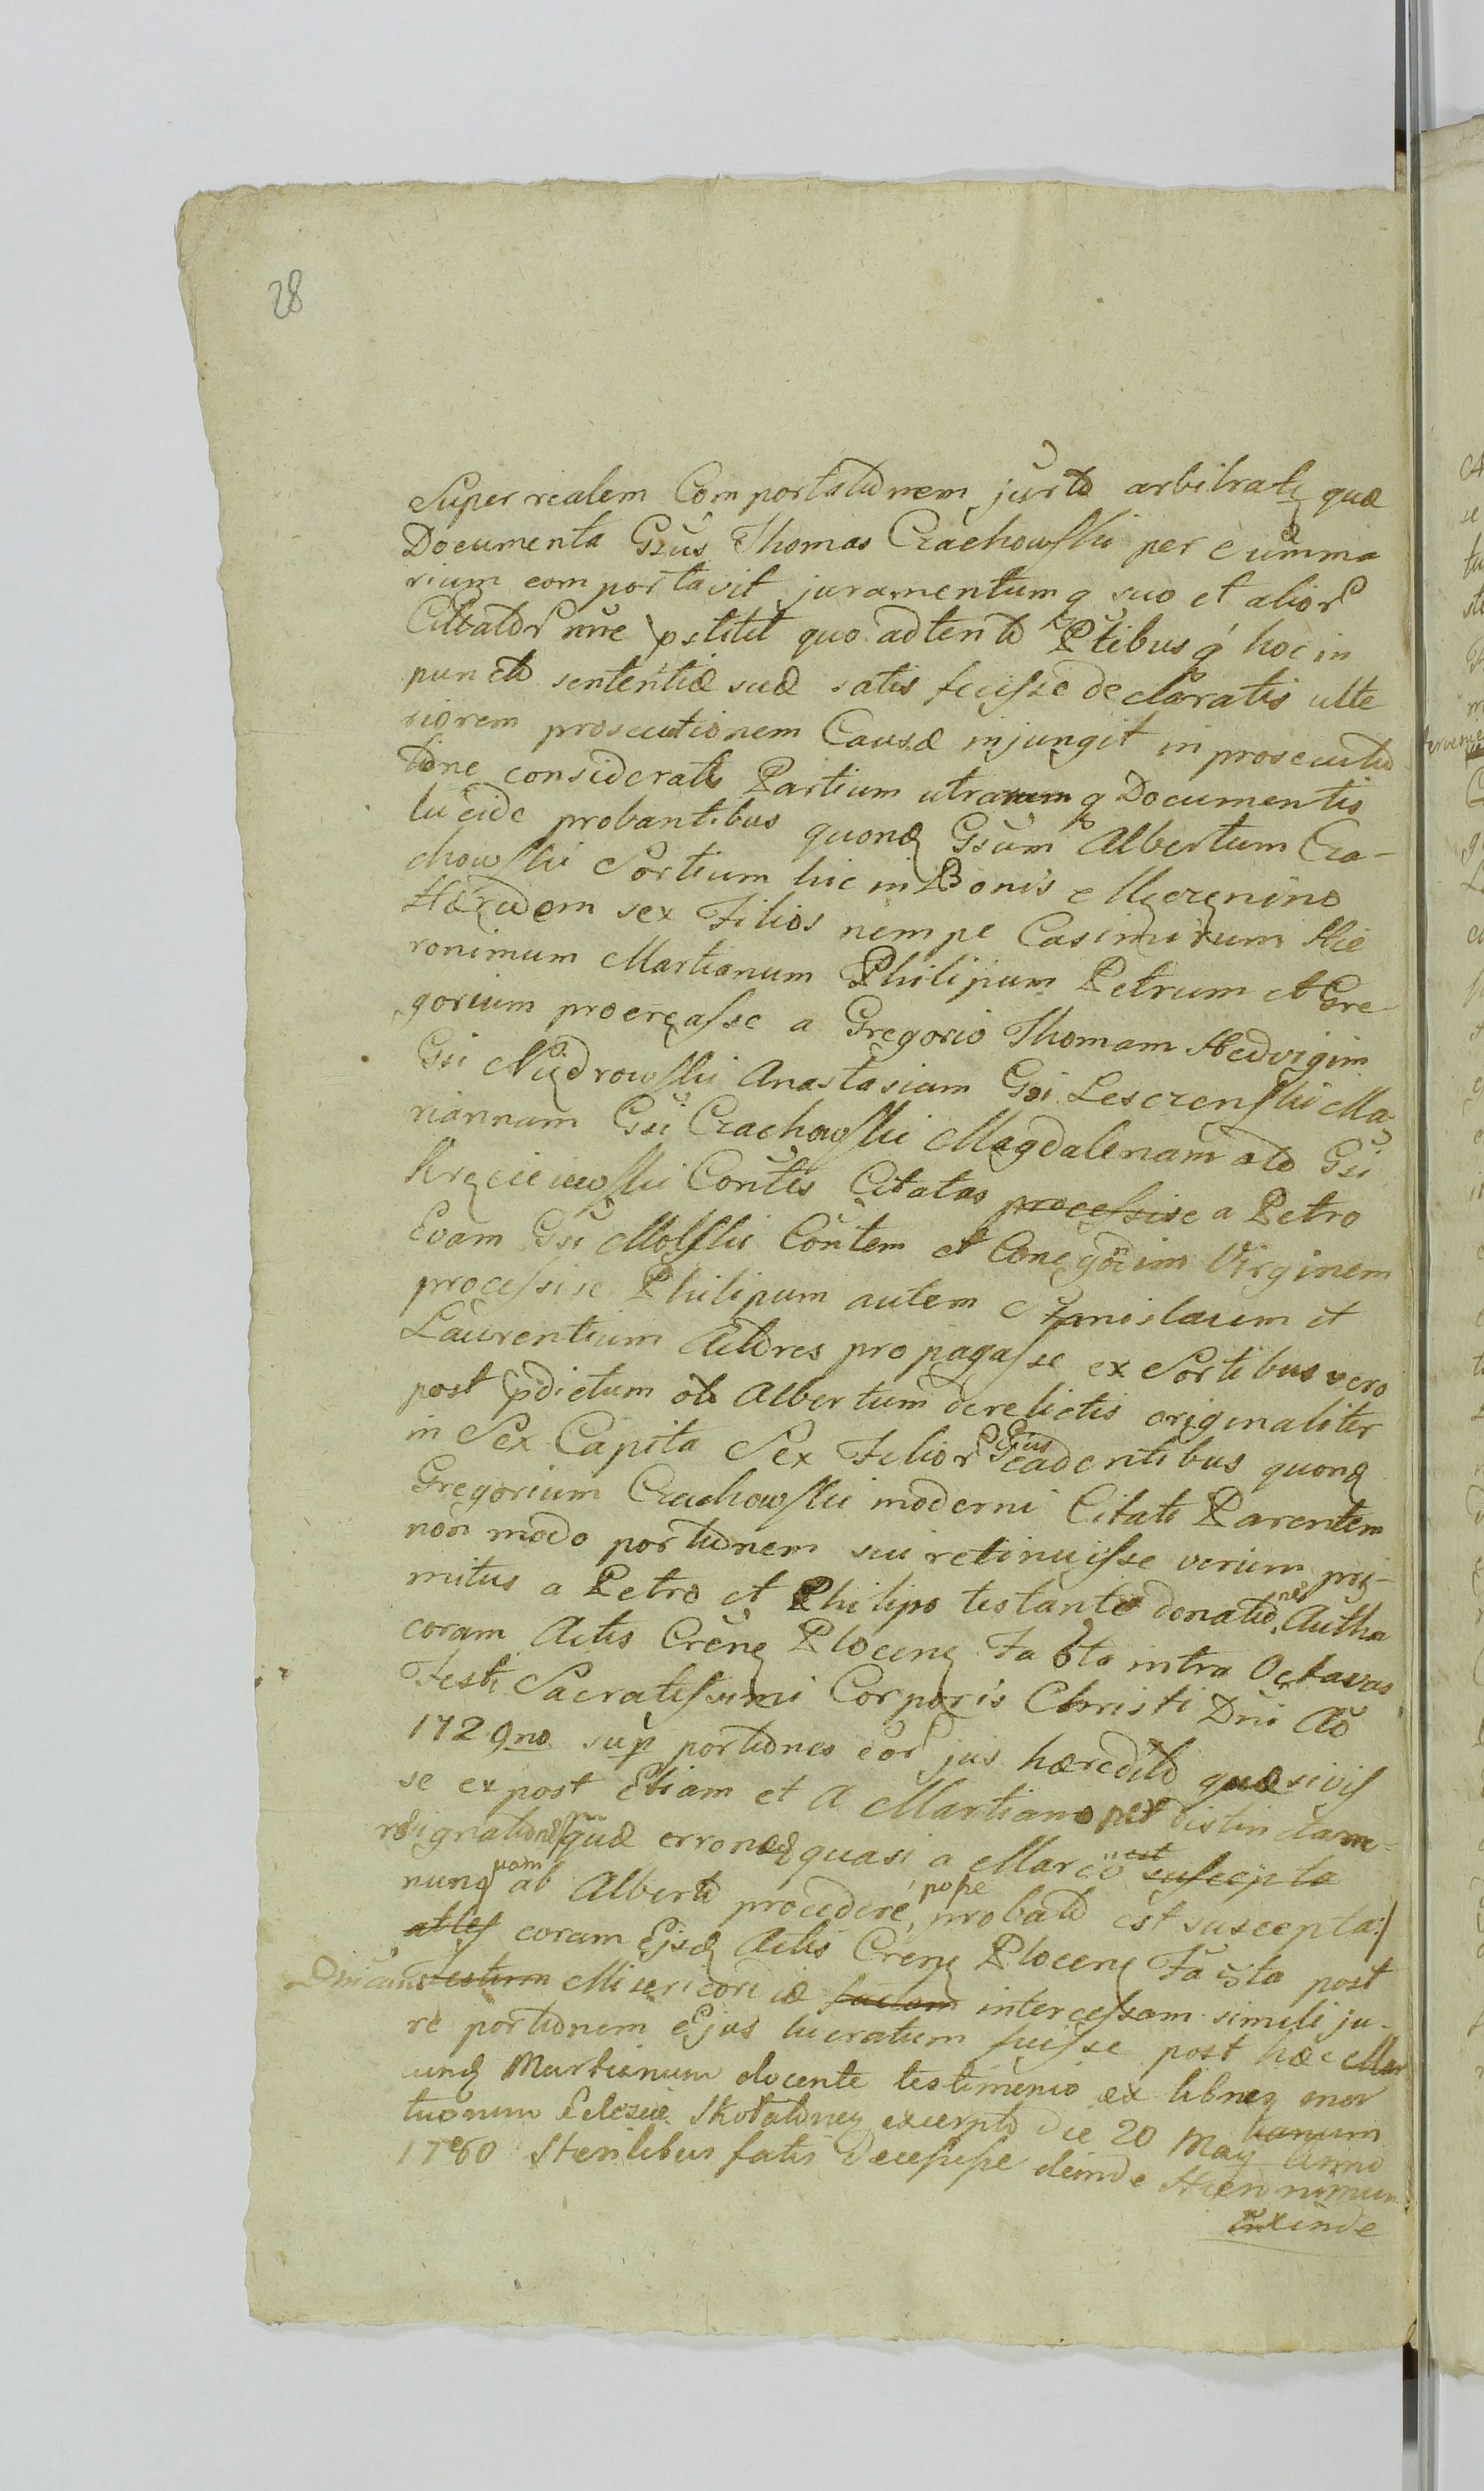 28
Super realem Comportationem jurto arbitratę quæ
Documenta Gsus Thomas Czachowski per summa
rium comportavit juramentumq suo et alior
Citator nne pstitit quo adtento Ptibus q hoc in
puncto sententiæ suæ satis fecisse declaratis ulte
riorem prosecutionem Causæ injungit in prosecutio
tione consideratis Partium utrarumq Documentis
lucide probantibus quonđ Gsum Albertum Cza-
chowski Sortium hic in Bonis
Hæredem sex Filios nempe Casimirum Hie
ronimum Martianum Philipum Petrum et Gre-
gorium procreasse a Gregorio Thomam Hedvigim
Gsi Nędrowski Anastasiam Gsi Leszczenski Ma
riannam Gsi Czachowski Magdalenam ato Gsi
Contes Citatas processise a Petro
Evam Gsi Molski Contem et Conegõdim Virginem
processise Philipum autem Stanislaum et
Laurentium Actores propagasse ex Sortibus vero
post pdictum ol Albertum derelictis originaliter
in Sex Capita Sex Filior Ejus cadentibus quonđ
Gregorium Czachowski moderni Citati Parentem
non modo portionem sui retinuisse verum pri-
mitus a Petro et Philipo testante donatio,ne Autha
coram Actis Crenę Plocenę Fa 6ta intra Octavas
Festi Sacratissimi Corporis Christi Dni Ao
1729no sup portiones eor jus hæredito quæsivis
se expost Etiam et a Martiano per distinctam
resignationem quæ erroneę quasi a Marcio est suscepta
nunq uam ab Alberto procedere, pope probato est suscepta:/
coram Ejsđ Actis Crenę Plocenę Fa 5ta post
Dnicam Festum Misericordiæ factam intercessam simili ju-
re portionem Ejus lucratum fuisse post hæc Mar
Martianum docente testimonio ex libris mor
tuorum Eclesiæ excerpto die 20 May Anno
1760 Sterilibus fatis decessisse deinde Hieronimum
Exinde